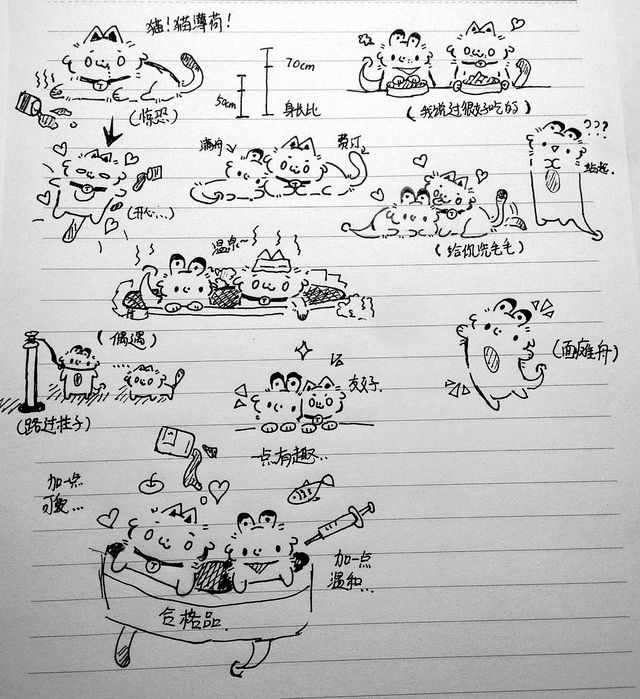 猫!猫薄荷!
70cm
50cm
身长比
(惊恐)
(我说过很好吃的)
满舟
费汀
???
站起
(开心...)
(给你洗毛毛)
温泉~
(偶遇)
(面瘫舟)
(路过柱子)
友好
一点有趣...
加一点
可爱...
加一点
温和...
T
合格品